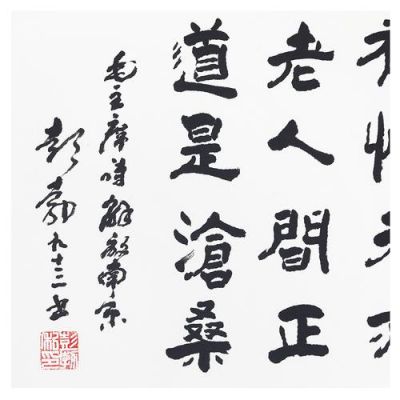 老人間正
道是滄桑
毛主席詩解放南京
彭勃九十三書